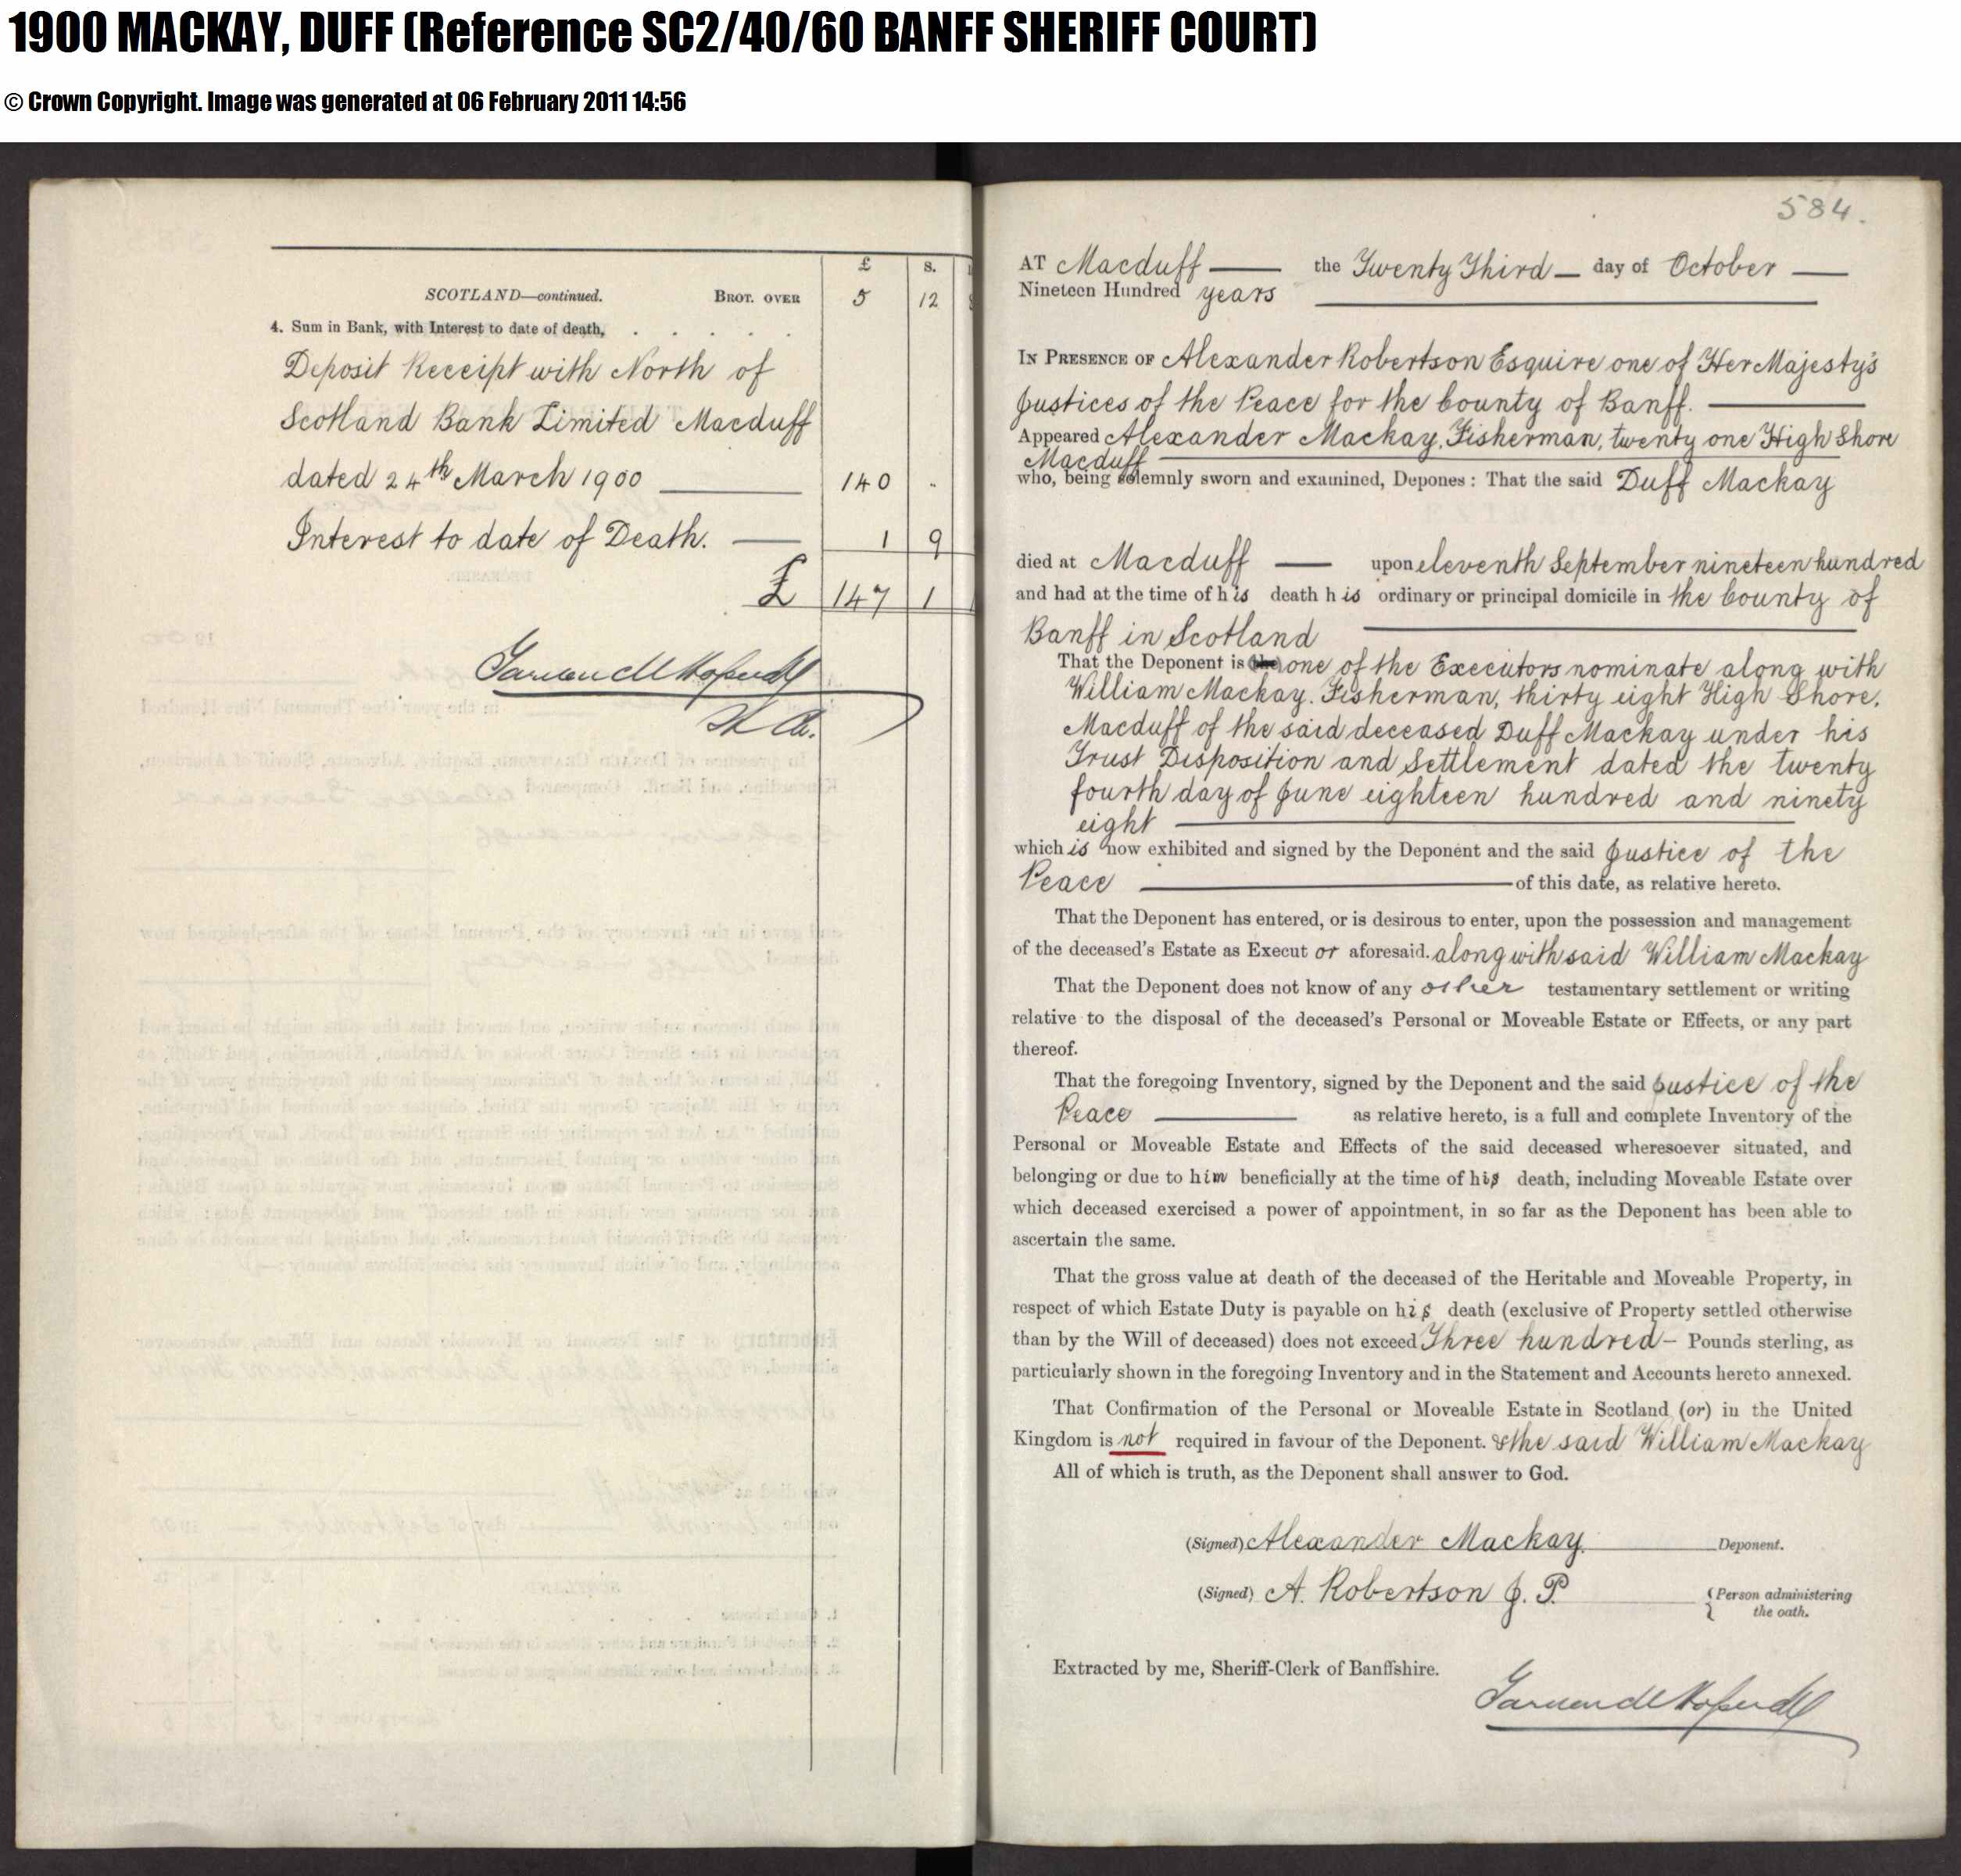 1900 MACKAY, DUFF (Reference SC2/40/60 BANFF SHERIFF COURT)
© Crown Copyright. Image was generated at 06 February 2011 14:56
£ s.
SCOTLAND—continued. BROT. OVER 5 12
4. Sum in Bank, with Interest to date of death, . . . . .
Deposit Receipt with North of
Scotland Bank Limited Macduff
dated 24th March 1900 140 .
Interest to date of Death. 1 9
£ 147 1
584.
AT Macduff the Twenty Third day of October
Nineteen Hundred years
IN PRESENCE OF Alexander Robertson Esquire one of Her Majesty's
Justices of the Peace for the County of Banff.
Appeared Alexander Mackay, Fisherman, twenty one High Shore
Macduff
who, being solemnly sworn and examined, Depones: That the said Duff Mackay
died at Macduff upon eleventh September nineteen hundred
and had at the time of his death his ordinary or principal domicile in the County of
Banff in Scotland
That the Deponent is one of the Executors nominate along with
William Mackay. Fisherman, thirty eight High Shore.
Macduff of the said deceased Duff Mackay under his
Trust Disposition and Settlement dated the twenty
fourth day of June eighteen hundred and ninety
eight
which is now exhibited and signed by the Deponent and the said Justice of the
Peace of this date, as relative hereto.
That the Deponent has entered, or is desirous to enter, upon the possession and management
of the deceased's Estate as Executor aforesaid. along with said William Mackay
That the Deponent does not know of any other testamentary settlement or writing
relative to the disposal of the deceased's Personal or Moveable Estate or Effects, or any part
thereof.
That the foregoing Inventory, signed by the Deponent and the said Justice of the
Peace as relative hereto, is a full and complete Inventory of the
Personal or Moveable Estate and Effects of the said deceased wheresoever situated, and
belonging or due to him beneficially at the time of his death, including Moveable Estate over
which deceased exercised a power of appointment, in so far as the Deponent has been able to
ascertain the same.
That the gross value at death of the deceased of the Heritable and Moveable Property, in
respect of which Estate Duty is payable on his death (exclusive of Property settled otherwise
than by the Will of deceased) does not exceed Three hundred – Pounds sterling, as
particularly shown in the foregoing Inventory and in the Statement and Accounts hereto annexed.
That Confirmation of the Personal or Moveable Estate in Scotland (or) in the United
Kingdom is not required in favour of the Deponent. & the said William Mackay
All of which is truth, as the Deponent shall answer to God.
(Signed) Alexander Mackay. Deponent.
(Signed) A. Robertson J. P. {Person administering
the oath.
Extracted by me, Sheriff-Clerk of Banffshire.